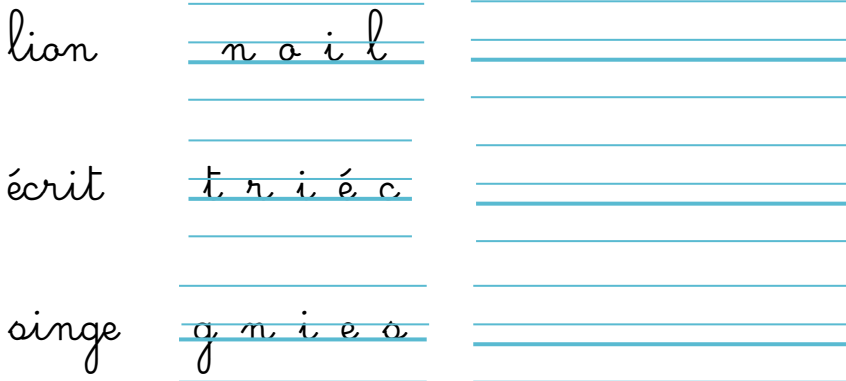 lion n o i l
écrit t r i é c
singe g n i e s